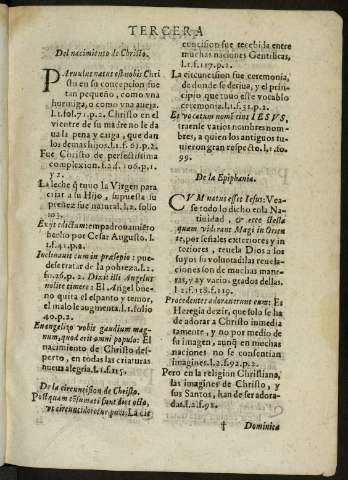 TERCERA
Del nacimiento de Christo.
PArvulus natus est nobis Chri
sto en su concepcion fue
tan pequeño, como vna
hormiga, o como vna aueja.
l.1.fol.71.p.2. Christo en el
vientre de su madre le da
ua la pena y carga, que dan
los demas hijos. l.1.f.61.p.2.
Fue Christo de perfectissima
complexion. l.2.f.106.p.1.
y 2.
La leche q̃ tuuo la Virgen para
criar a su Hijo, supuesta su
preñez fue natural. l.2. folio
103.
Exijt edictum: empadronamiẽto
hecho por Cesar Augusto. l.
1.f.41.p.2.
Inclinauit eum in præsepio: pue-
dese tratar de la pobreza. l.2.
fo.26.p.2. Dixit illi Angelus
nolite timere: El Angel bue-
no quita el espanto y temor,
el malo le augmenta. l.1. folio
40.p.2.
Euangelizo vobis gaudium mag-
num, quod erit omni populo: El
nacimiento de Christo des
perto, en todas las criaturas
nueua alegria. l.1.f.115.
De la circuncision de Christo.
Postquam cõsumati sunt dies octo,
vt circuncideretur puer: La cir
cuncision fue recebida entre
muchas naciones Gentilicas.
l.1.f.117.p.2.
La circuncision fue ceremonia,
de donde se deriua, y el prin-
cipio que tuuo este vocablo
ceremonia. l.1.f.31.p.2.
Et vocatum nomẽ eius IESVS,
traense varios nombres nom-
bres, a quien los antiguos tu-
uieron gran respecto. l.1.fo.
99.
De la Epiphania.
CVM natus esset Iesus: Vea-
se todo lo dicho en la Na-
tiuidad, & ecce stella
quam viderant Magi in Orien
te, por señales exteriores y in
teriores, reuela Dios a los
suyos su voluntad: las reuela-
ciones son de muchas mane-
ras, y ay varios grados dellas.
l.2.f.118.f.119.
Procedentes adorauerunt eum: Es
Heregia dezir, que solo se ha
de adorar a Christo inmedia
tamente, y no por medio de
su imagen, aunq̃ en muchas
naciones no se consentian
imagines. l.2.f.92.p.2.
Pero en la religion Christiana,
las imagines de Christo, y
sus Santos, han de ser adora-
das. l.2.f.91.
† Dominica